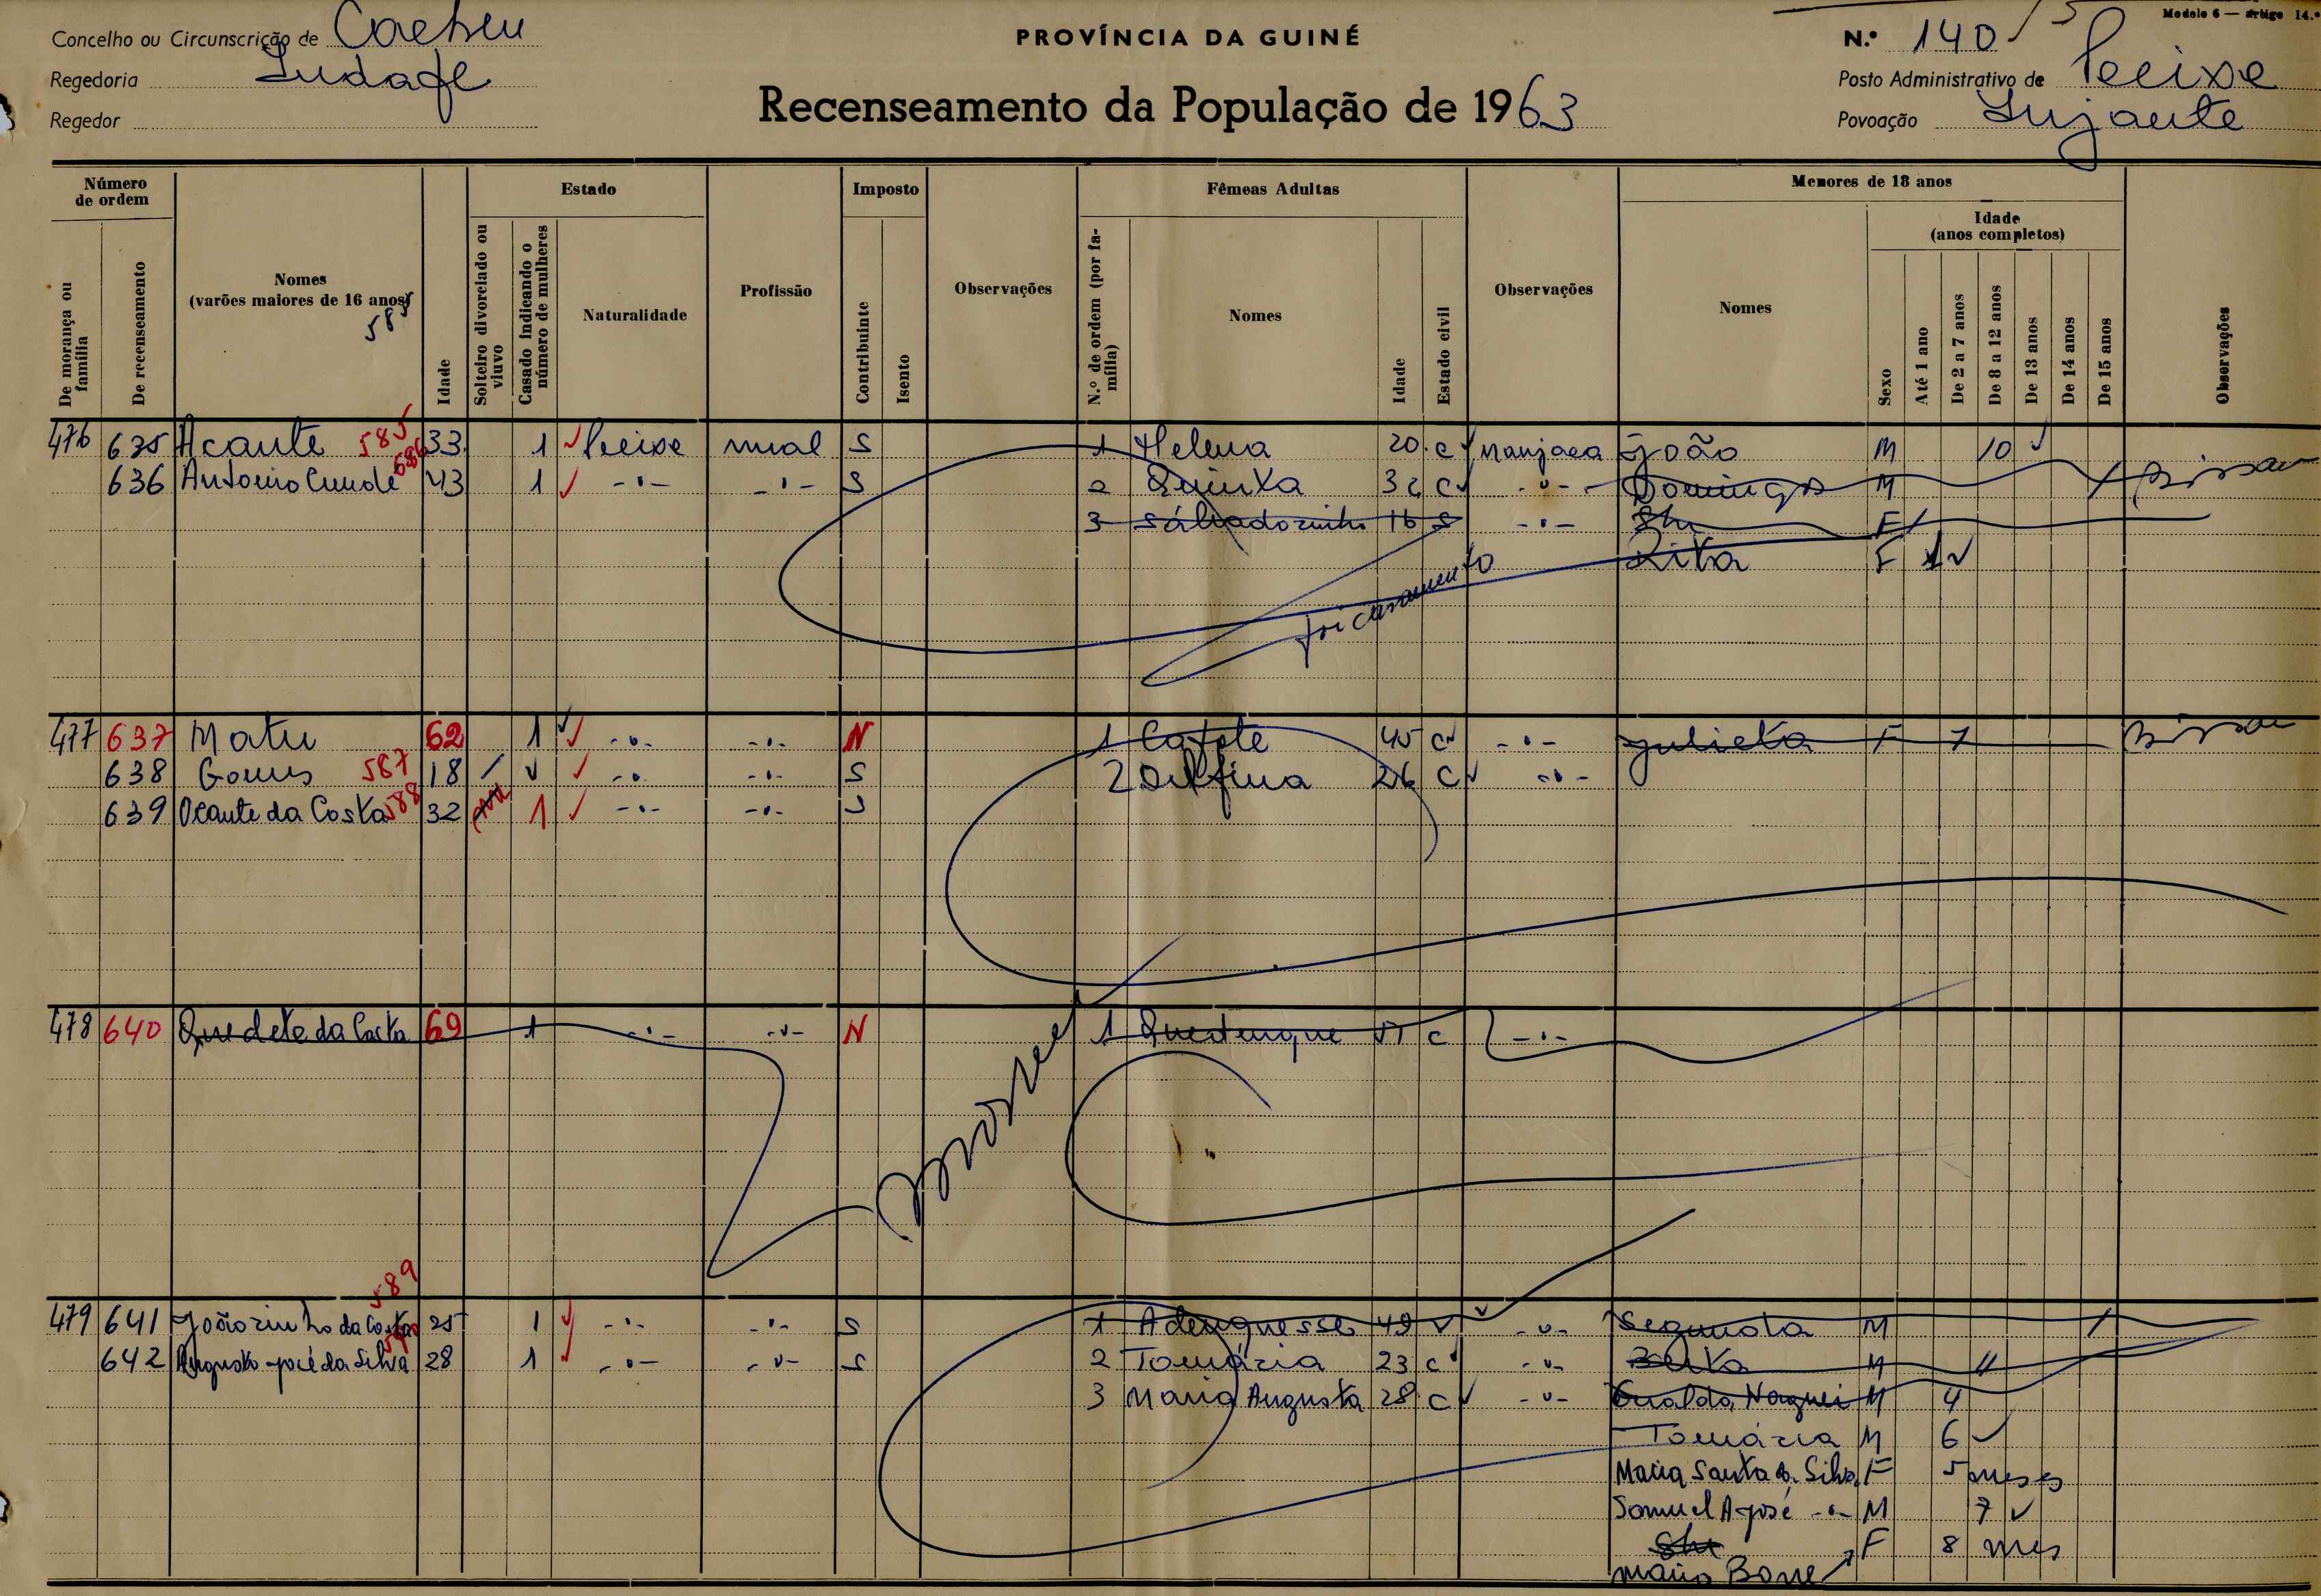 Concelho ou Circunscrição de Caeheu
PROVÍNCIA DA GUINÉ
N.º 140
Modelo 6 — Artigo 14.º
Regedoria
Posto Administrativo de Pecixe
Recenseamento da População de 1963
Regedor
Povoação
Número de ordem
Estado
Imposto
Fêmeas Adultas
Menores de 18 anos
Idade (anos completos)
De morança ou família
De recenseamento
Nomes (varões maiores de 16 anos)
585
Idade
Solteiro divorciado ou viuvo
Casado indicando o número de mulheres
Naturalidade
Profissão
Contribuinte
Isento
Observações
N.º de ordem (por família)
Nomes
Idade
Estado civil
Observações
Nomes
Sexo
Até 1 ano
De 2 a 7 anos
De 8 a 12 anos
De 13 anos
De 14 anos
De 15 anos
Observações
476 635 Acante 585 33 1 ✓ Pecixe rural S 1 Helena 20 c ✓ Manjaca João M 10 ✓
636 Antonio 43 1 ✓ -"- -"- S 2 Quinta c ✓ -"- Domingos M Bissau
3 16 S -"- F
Rita F 1 ✓
477 637 Matu 62 1 ✓ -"- -"- N 1 45 c ✓ -"- Julieta F 7 Bissau
638 Gomes 587 18 / ✓ -"- -"- S 2 Delfina 26 c ✓ -"-
639 Ocante da Costa 588 32 1 ✓ -"- -"- S
478 640 Quedete da Costa 69 1 -"- -"- N 1 c -"-
morreu
589
479 641 Joãozinho da Costa 25 1 ✓ -"- -"- S 1 Adenguesse 49 v ✓ -"- Segunda M 1
642 Augusto José da Silva 28 1 ✓ -"- -"- S 2 Tomázia 23 c -"- M 11
3 Maria Augusta 28 c ✓ -"- M 4
Tomázia M 6 ✓
Maria Santa Silva F 5 meses
Samuel A José -"- M 7 ✓
F 8 mes